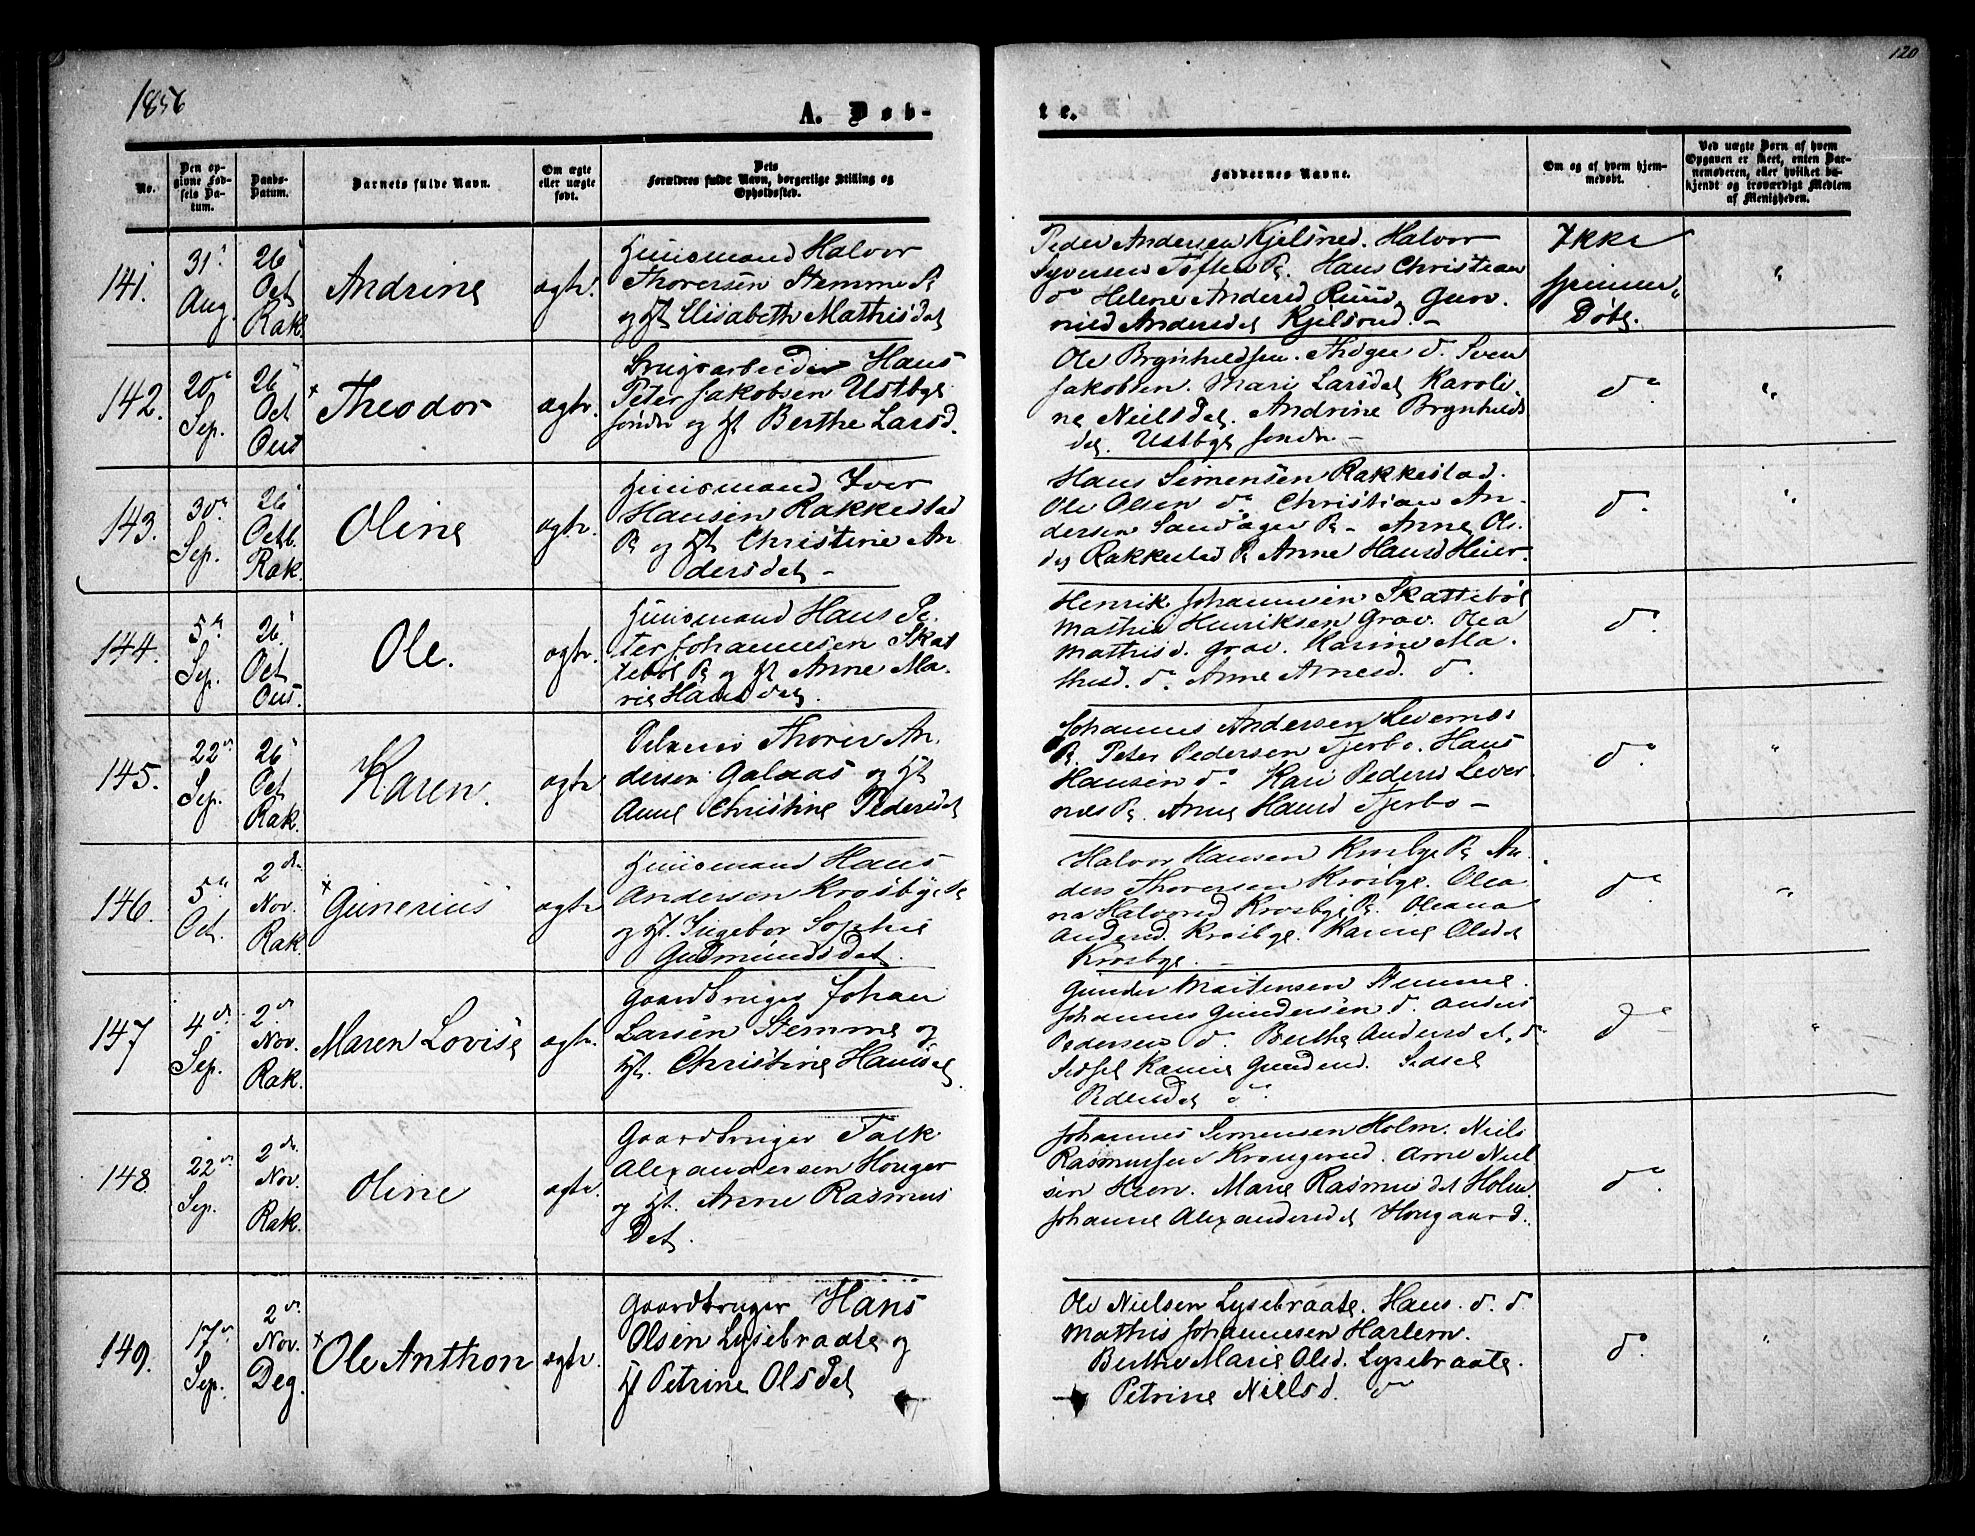 1856
120
A. Døb-
te.
No.
Den op-
givne Fød-
sels Da-
tum.
Daabs-
Datum.
Barnets fulde Navn.
Om ægte
eller uægte
født.
Dets
Forældres fulde Navn, borgerlige Stilling og
Opholdssted.
Faddernes Navne.
Om og af hvem hjem-
medøbt.
Ved uægte Børn af hvem
Opgaven er skeet, enten Bar-
nemoderen, eller hvilket be-
kjendt og troværdigt Medlem
af Menigheden.
141.
31
Aug.
26
Oct
Rak.
Andrine
ægte.
Huusmand Halvor
Thoversen Stemme R
og H Elisabeth Mathisdat
Peder Andersen Kjelsrud. Halvor
Syversen Toften R. Hans Christian
do Helene Andersd Ruud, Gun-
nild Andersdat Kjelsrud. -
Ikke
hjemme-
Døbt.
"
142.
20
Sep.
26
Oct
Ous
x Theodor
ægte.
Brugsarbeider Hans
Peter Jakobsen Ustbye
søndre og H Berthe Larsd.
Ole Brynhildsen. Thoger do. Sven
Jakobsen. Mari Larsdat Karoli-
ne Nielsdat. Andrine Brynhilds
dat. Ustbye søndre -
do
"
143.
30
Sep.
26
Octb.
Rak.
Oline
ægte.
Huusmand Iver
Hansen Rakkestad
R og H Christine An
dersdat -
Hans Simensen Rakkestad.
Ole Olsen do Christian An-
dersen Sandager R - Anne Ols-
dat Rakkestad R Anne Hansd Heier-
do.
"
144.
5
Sep.
26
Oct
Ous.
Ole.
ægte.
Huusmand Hans Pe-
ter Johannesen Skat
tebøl R og H Anne Ma-
rie Hansdat.
Henrik Johannesen Skattebøl
Mathis Henriksen Grav. Olea
Mathisd. Grav. Karine Ma-
thisd. do. Anne Arnesd. do.
do.
145.
22
Sep.
26
Oct
Rak.
Karen.
ægte
Thorer An-
dersen Galaas og H
Anne Christine Pedersdat
Johannes Andersen Levernes
R. Peter Pedersen Tjerbo. Hans
Hansen do. Kari Pedersd Lever-
næs R. Anne Hansd Tjerbo -
do.
"
146.
5
Oct.
2
Nov.
Rak.
x Gunerius
ægte
Huusmand Hans
Andersen Krosbye R
og H. Ingebor Sophie
Gudmundsdat.
Halvor Hansen Krosbye R. An-
ders Thoresen Krosbye. Olea-
na Halvorsd Krosbye R. Oleana
Andersd. Krosbye. Karine Olsdat
Krosbye. -
do
"
147
4
Sep.
2
Nov.
Rak.
Maren Lovise
ægte.
Gaardbruger Johan
Larsen Stemme og
H. Christine Hansdat.
Gunder Mortensen Stemme.
Johannes Gundersen do. Anders
Pedersen do. Berthe Andersdat, do
Sidsel Karine Gundersd. Sidsel
Pedersdat do.
do
"
148
22
Sep.
2
Nov.
Rak.
Oline
ægte.
Gaardbruger Falk
Alexandersen Houger
og H. Anne Rasmus
Dat.
Johannes Simensen Holm. Niels
Rasmussen Krongerud. Arne Niel
sen Hem. Marie Rasmusdat Holm.
Johanne Alexandersdat Hougaard.
do.
149.
17
Sep.
2
Nov.
Deg.
x Ole Anthon
ægte.
Gaardbruger Hans
Olsen Lysebraate og
H Petrine Olsdat
Ole Nielsen Lysebraate. Hans. do. do
Mathis Johannesen Harlem.
Berthe Marie Olsd. Lysebraate.
Petrine Nielsd. do
do.
"